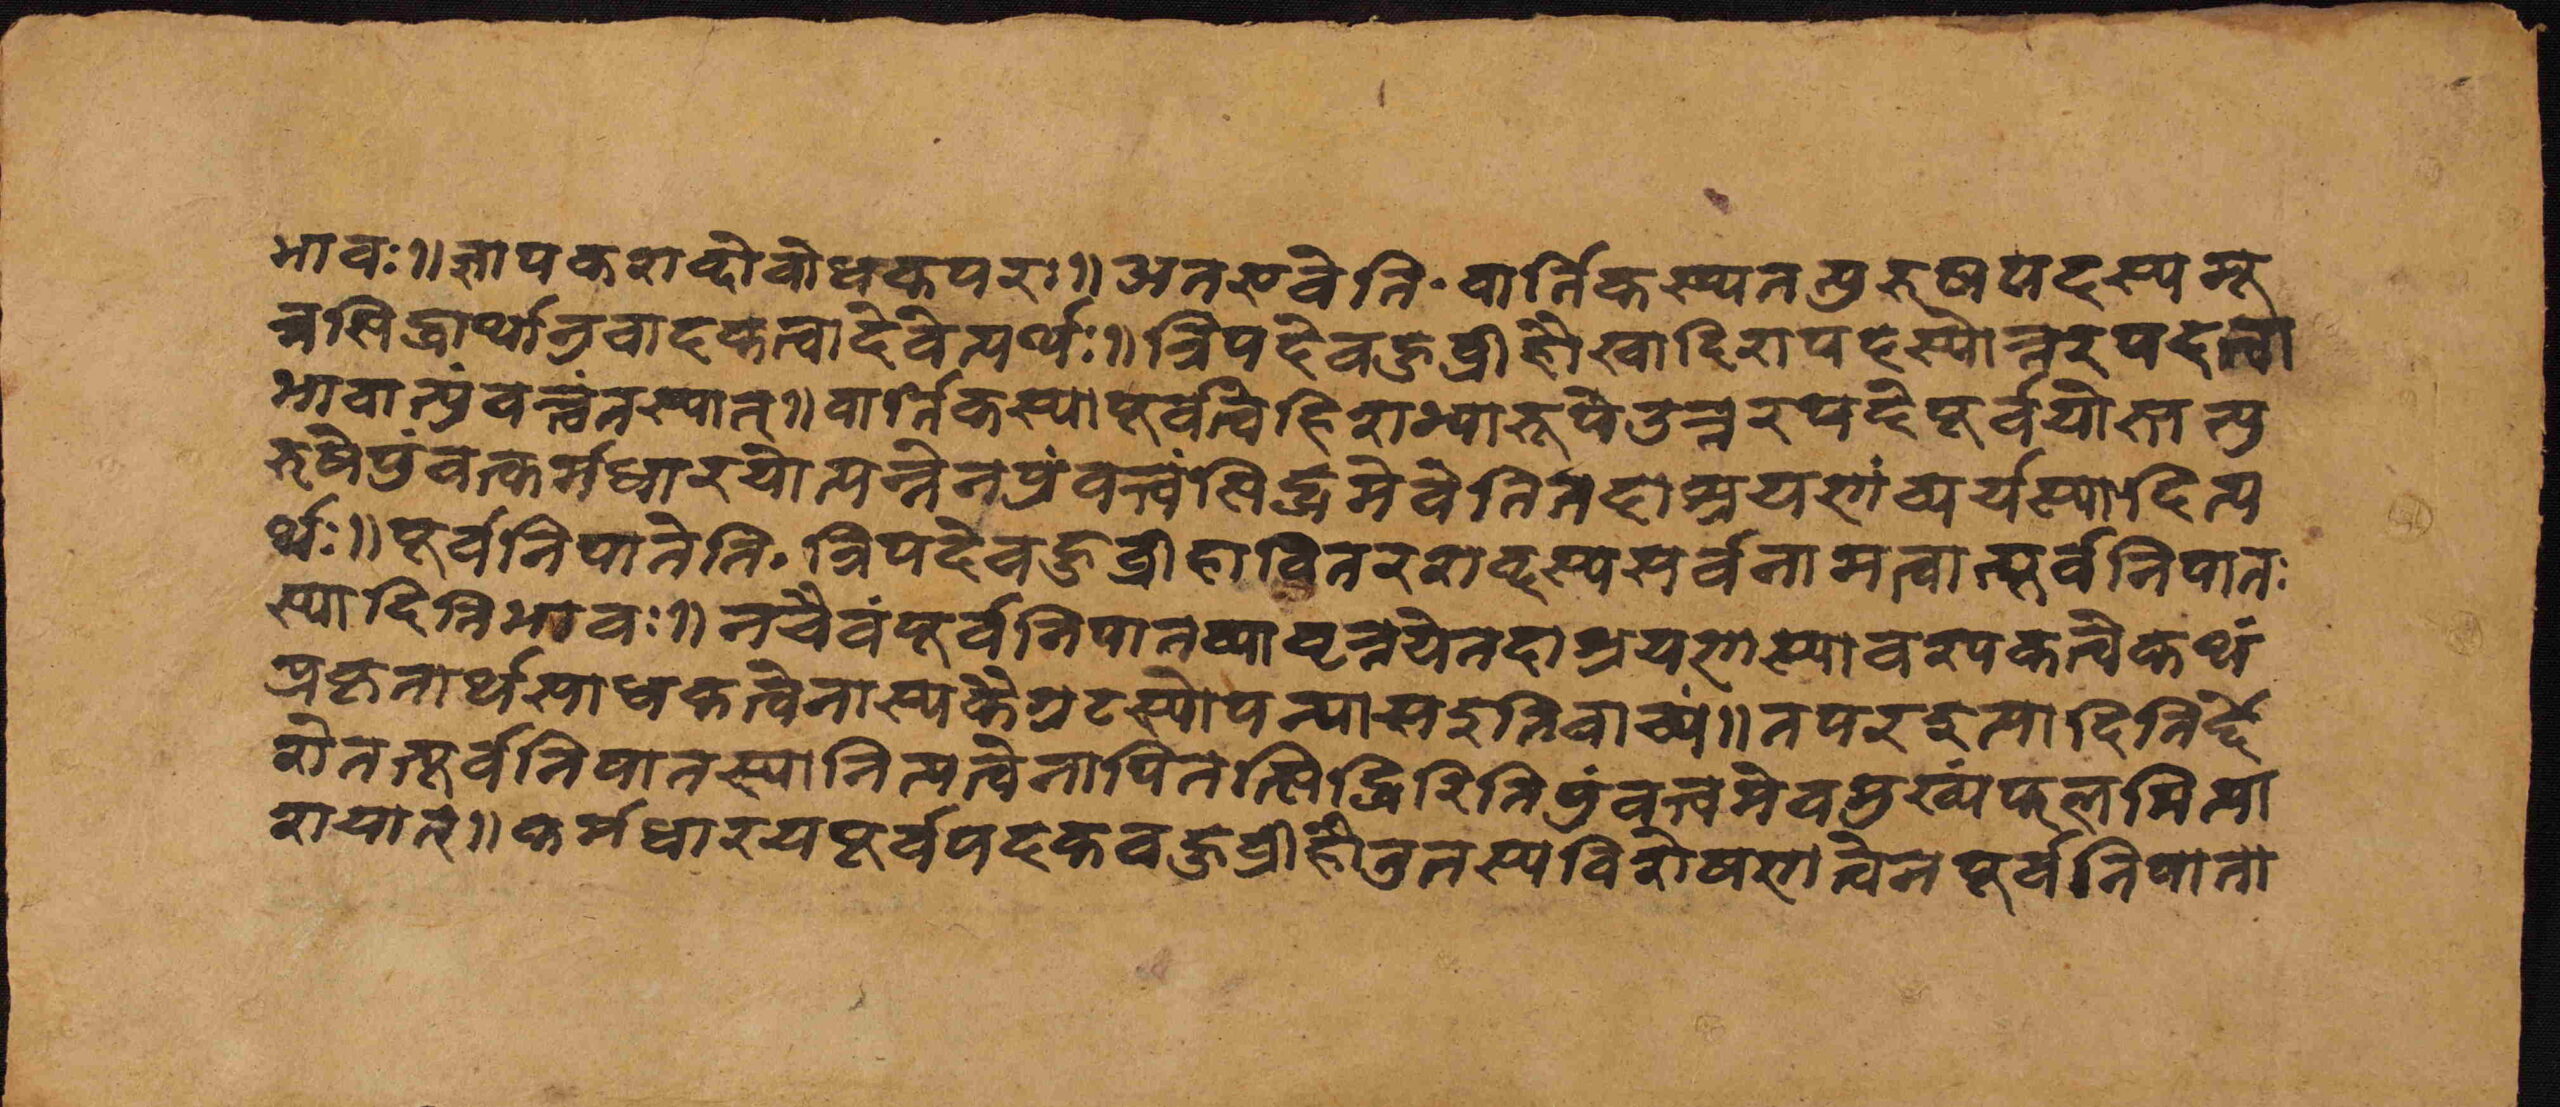 भावः॥ ज्ञापकशब्दोबोधकपरः॥ अतएवेति॰ वार्तिकस्थतत्पुरुषपदस्य सू
त्रसिद्धार्थानुवादकत्वादेवेत्यर्थः॥ त्रिपदेबहुव्रीहौस्वादिशपदस्योत्तरपदत्वा
भावात्पुंवत्त्वंनस्यात्॥ वार्तिकस्यापूर्वत्वेहिशभ्यारूपेउत्तरपदेपूर्वयोस्तत्पु
रुषेपुंवत्कर्मधारयोत्यत्नेनपुंवत्त्वंसिद्धमेवेतितदाश्रयणंव्यर्थस्यादित्य
र्थः॥ पूर्वनिपातेति॰ त्रिपदेबहुव्रीहावितरशब्दस्यसर्वनामत्वात्पूर्वनिपातः
स्यादितिभावः॥ नचैवंपूर्वनिपातव्यावृत्तयेतदाश्रयणस्यावश्यकत्वेकथं
प्रकृतार्थसाधकत्वेनास्यकैयटस्योपन्यासइतिवाच्यं॥ तपरइत्यादिनिर्द्दे
शेनत्पूर्वनिपातस्यानित्यत्वेनापितत्सिद्धिरितिपुंवत्त्वमेवमुख्यंफलमित्या
शयात्॥ कर्मधारयपूर्वपदकबहुव्रीहौतुतस्यविशेषणत्वेनपूर्वनिपाता